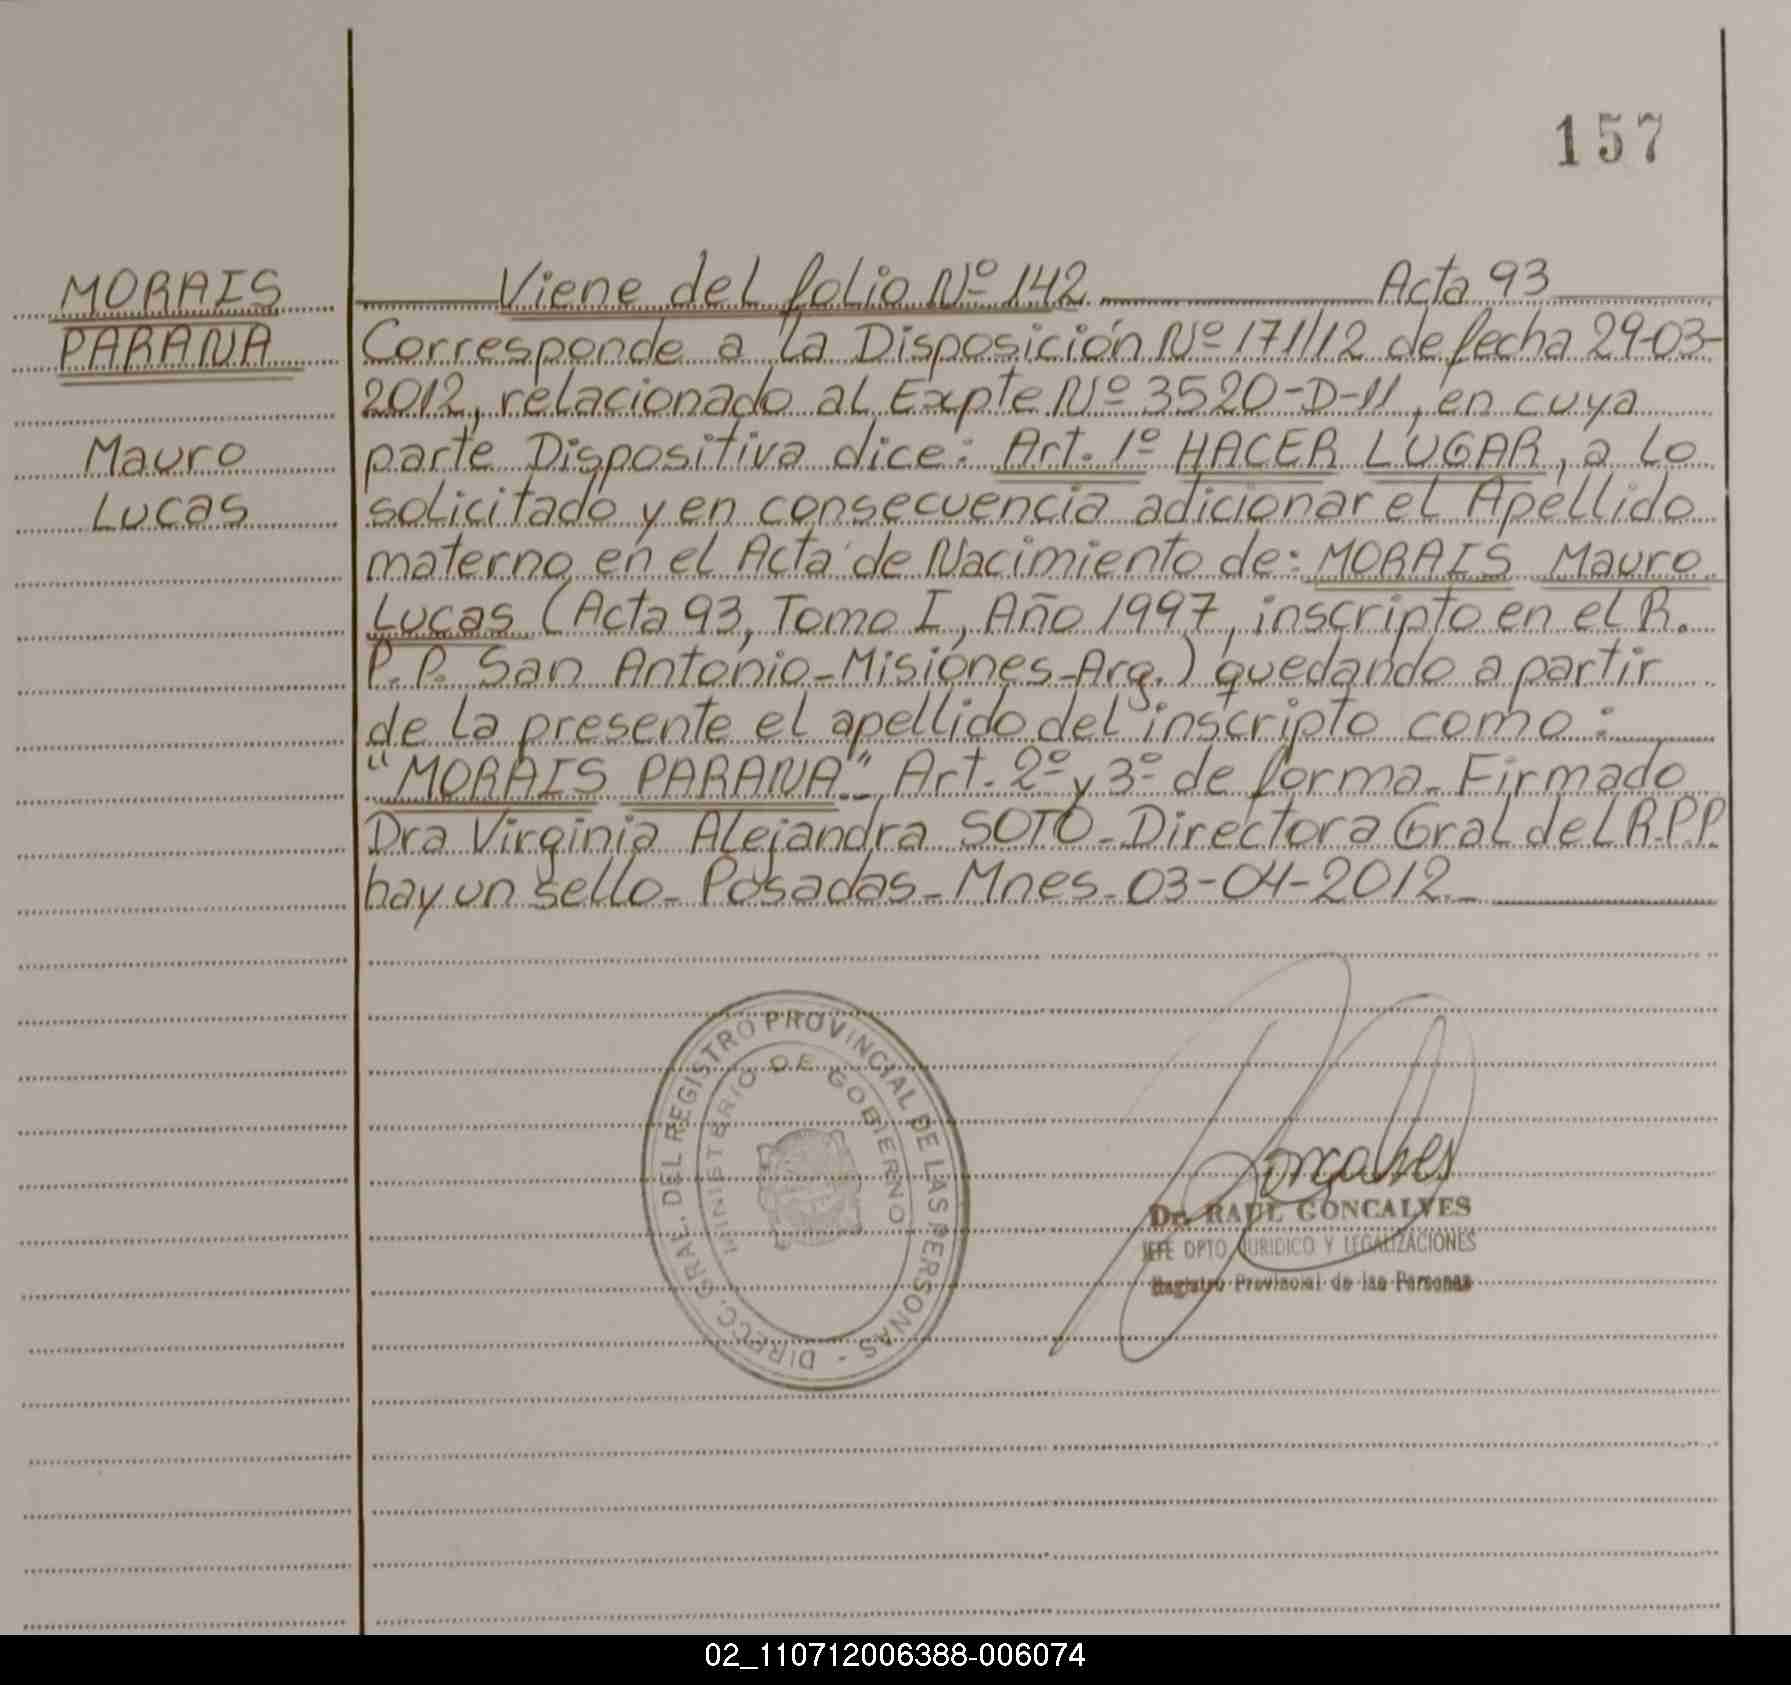 157
MORAIS
PARANA
Mauro
Lucas
Viene del folio Nº 142 Acta 93
Corresponde a la Disposición Nº 171/12 de fecha 29-03-
2012, relacionado al Expte Nº 3520-D-11, en cuya
parte Dispositiva dice: Art. 1º HACER LUGAR, a lo
solicitado y en consecuencia adicionar el Apellido
materno en el Acta de Nacimiento de: MORAIS Mauro
Lucas (Acta 93, Tomo I, Año 1997, inscripto en el R.
P.P. San Antonio-Misiones-Arg.) quedando a partir
de la presente el apellido del inscripto como:
"MORAIS PARANA"- Art. 2º y 3º de forma- Firmado
Dra Virginia Alejandra SOTO- Directora Gral del R.P.P.
hay un sello- Posadas- Mnes- 03-04-2012.-
DIRECC. GRAL. DEL REGISTRO PROVINCIAL DE LAS PERSONAS -
MINISTERIO DE GOBIERNO
Goncalves
Dr. RAUL GONCALVES
JEFE DPTO JURIDICO Y LEGALIZACIONES
Registro Provincial de las Personas
02_110712006388-006074